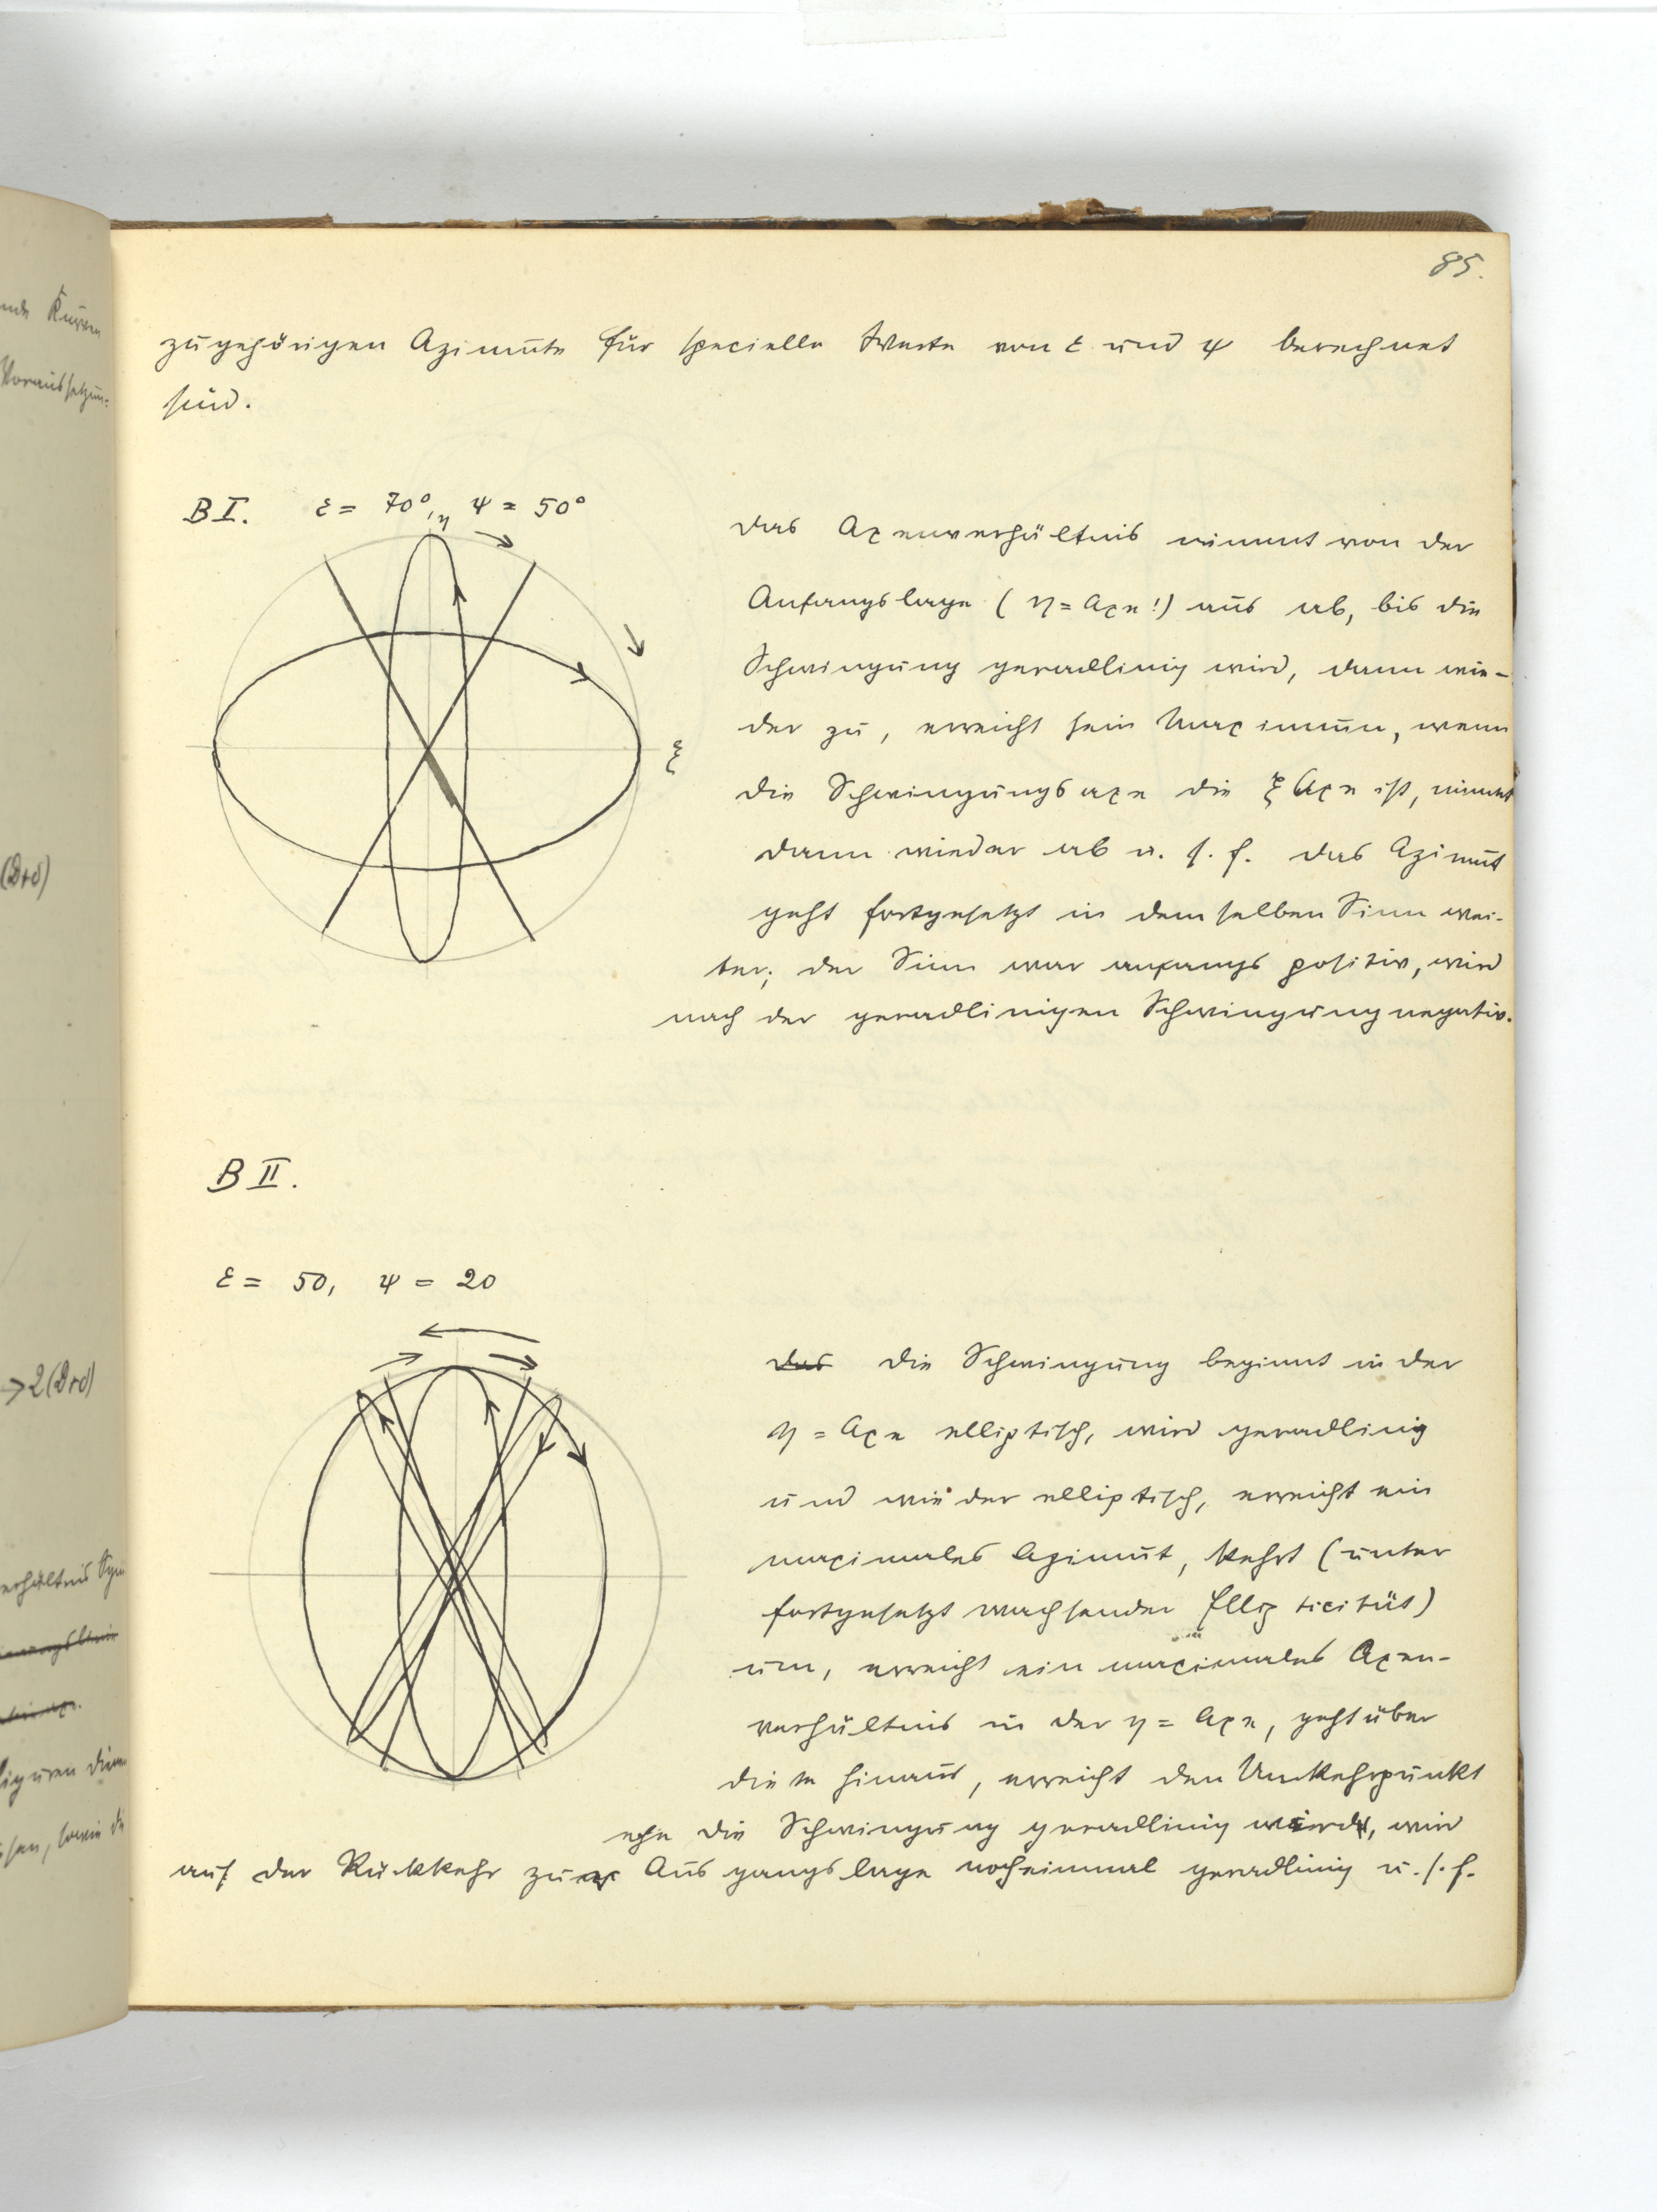 85.
zugehörigen Azimute für specielle Werte von ε und ψ berechnet
sind.
B I. ε = 70°, ψ = 50°
η
ξ
Das Axenverhältnis nimmt von der
Anfangslage (η = Axe!) aus ab, bis die
Schwingung geradlinig wird, dann wie-
der zu, erreicht sein Maximum, wenn
die Schwingungsaxe die ξ Axe ist, nimmt
dann wieder ab u. s. f. Das Azimut
geht fortgesetzt in demselben Sinn wei-
ter; der Sinn war anfangs positiv, wird
nach der geradlinigen Schwingung negativ.
B II.
ε = 50, ψ = 20
Das Die Schwingung beginnt in der
η = Axe elliptisch, wird geradlinig
und wieder elliptisch, erreicht ein
maximales Azimut, kehrt (unter
fortgesetzt wachsender Ellipticität)
um, erreicht ein maximales Axen-
verhältnis in der η = Axe, geht über
diese hinaus, erreicht den Umkehrpunkt
ehe die Schwingung geradlinig wird, wird
auf der Rückkehr zur Ausgangslage nocheinmal geradlinig u. s. f.
nde Kurven
Voraussetzun-
(D+δ)
→ 2(D+δ)
erhältnis Sym
iguren dien
sen, sowie di